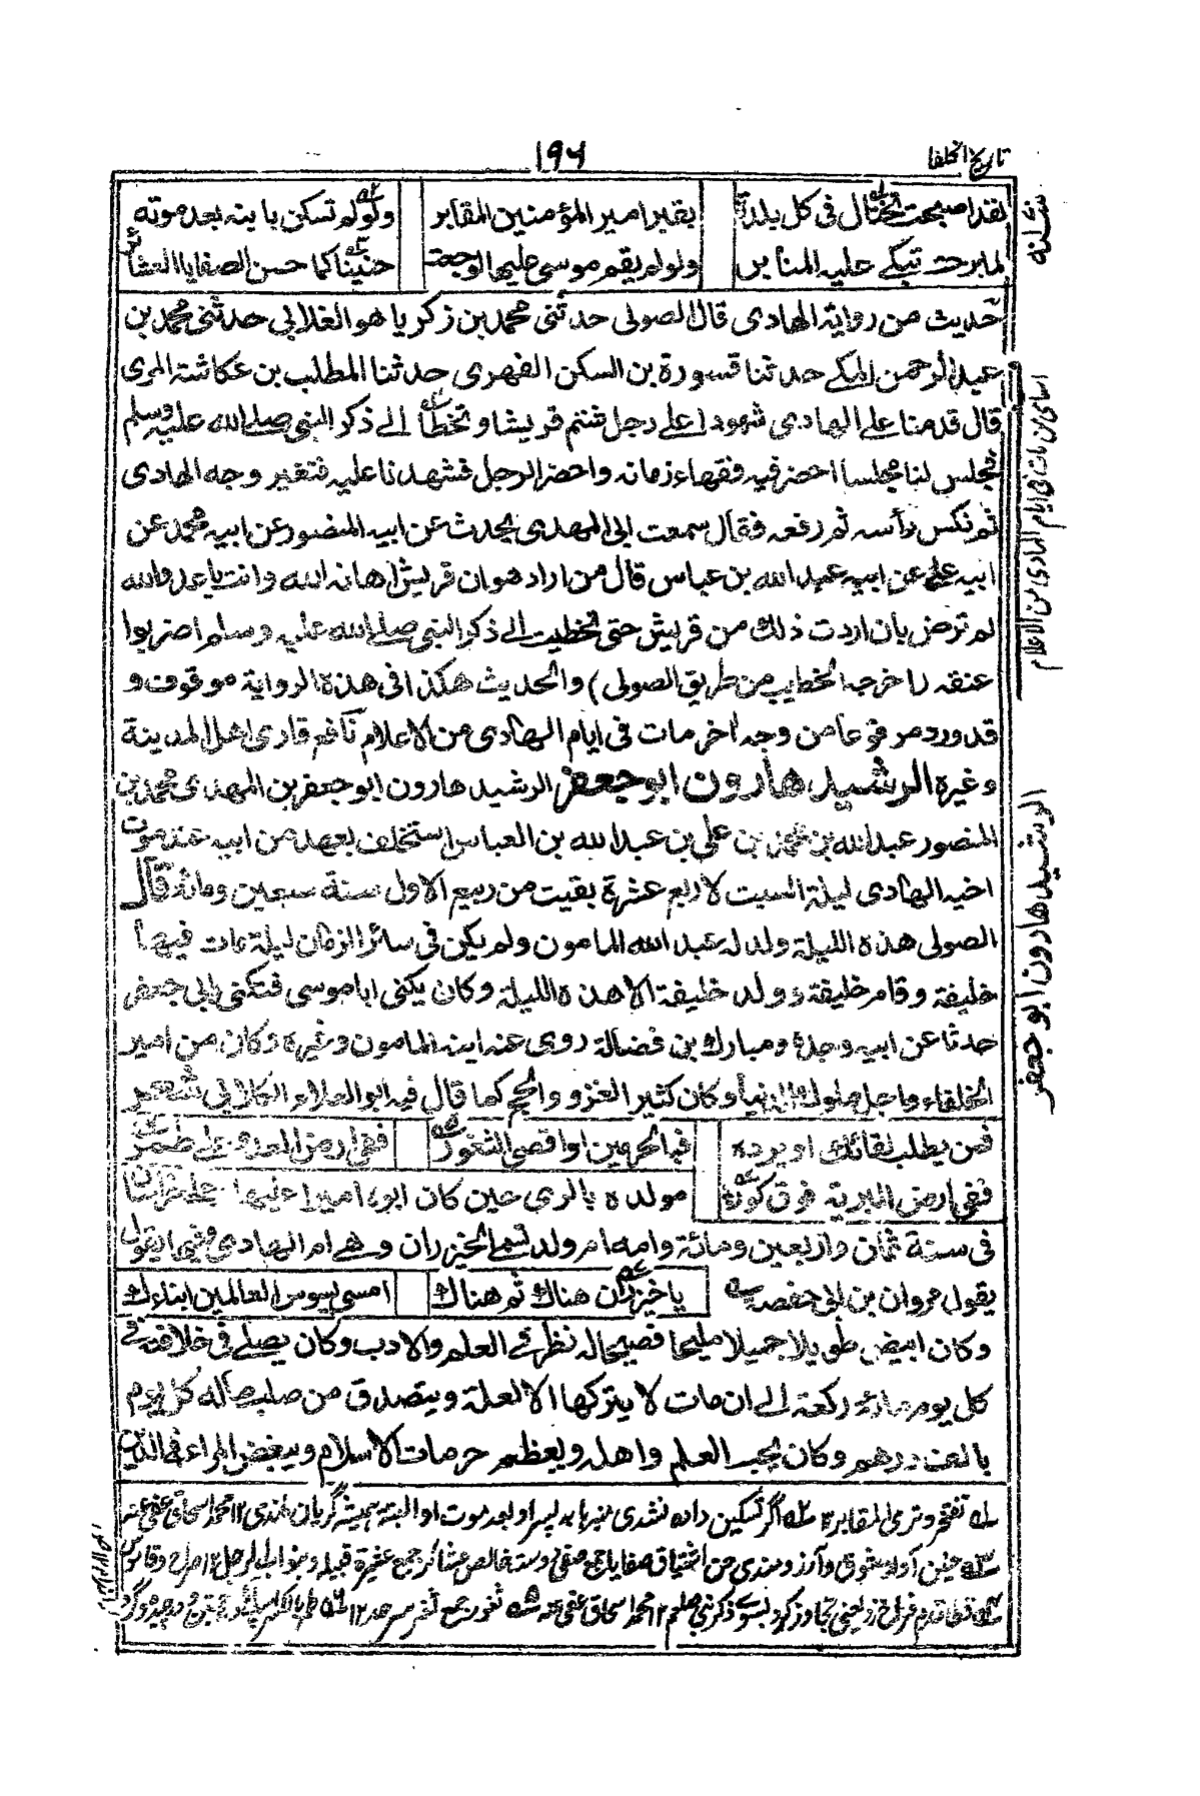 تاریخ الخلفا
۱۹۶
لقد اصبحت تختال فی کل بلدة بقبر امیر المؤمنین المقابر ولو لم تسکن بابنه بعد موته
لما برحت تبکے علیه المنابر ولو لم یقم موسی علیها لوجعت حنیناکما حن الصفایا العشائر
حدیث من روایة الهادی قال الصولی حدثنی محمد بن زکریا هو الغلابی حدثنی محمد بن
عبد الرحمن المکے حدثنا قسورة بن السکن الفهری حدثنا المطلب بن عکاشة المری
قال قدمنا علے الهادی شهودا علے رجل شتم قریشا وتخطأ الے ذکر النبی صلے الله علیه وسلم
فجلس لنا مجلسا احضر فیه فقهاء زمانه واحضر الرجل فشهدنا علیه فتغیر وجه الهادی
ثم نکس رأسه ثم رفعه فقال سمعت ابی المهدی یحدث عن ابیه المنصور عن ابیه محمد عن
ابیه علے عن ابیه عبد الله بن عباس قال من اراد هوان قریش اهانه الله وانت یا عدو الله
لم ترض بان اردت ذلك من قریش حتی تخطیت الے ذکر النبی صلے الله علیه وسلم اضربوا
عنقه (اخرجه الخطیب من طریق الصولی) والحدیث هکذا فی هذه الروایة موقوف و
قد ورد مرفوعا من وجه اخر مات فی ایام الهادی من الاعلام نافع قاری اهل المدینة
وغیره الرشید هارون ابو جعفر الرشید هارون ابو جعفر بن المهدی محمد بن
المنصور عبد الله بن محمد بن علی بن عبد الله بن العباس استخلف بعهد من ابیه عند موت
اخیه الهادی لیلة السبت لاربع عشرة بقیت من ربیع الاول سنة سبعین ومائة قال
الصولی هذه اللیلة ولد له عبد الله المامون ولم یکن فی سائر الزمان لیلة مات فیها
خلیفة وقام خلیفة وولد خلیفة الا هذه اللیلة وکان یکنی ابا موسی فتکنی بابی جعفر
حدث عن ابیه وجده ومبارك بن فضالة روی عنه ابنه المامون وغیره وکان من امیر
الخلفاء واجل ملوك الدنیا وکان کثیر الغزو والحج کما قال فیه ابو العلاء الکلابی شعر
فمن یطلب لقائك او یرده فبالحرمین او اقصی الثغور ففی ارض العدو علی طمر
وفی ارض البریة فوق کور مولده بالری حین کان ابوه امیرا علیها وعلے خراسان
فی سنة ثمان واربعین ومائة وامه ام ولد تسمے الخیزران وهے ام الهادی وفیها یقول
یقول مروان بن ابی حفصة یا خیزران هناك ثم هناك امسی یسوس العالمین ابناءك
وکان ابیض طویلا جمیلا ملیحا فصیحا له نظر فے العلم والادب وکان یصلے فی خلافته فے
کل یوم مائة رکعة الے ان مات لا یترکها الا لعلة ویتصدق من صلب ماله کل یوم
بالف درهم وکان یحب العلم واهله ویعظم حرمات الاسلام ویبغض المراء فی الدین
الرشید هارون ابو جعفر
اسامی من مات فی ایام الهادی من الاعلام